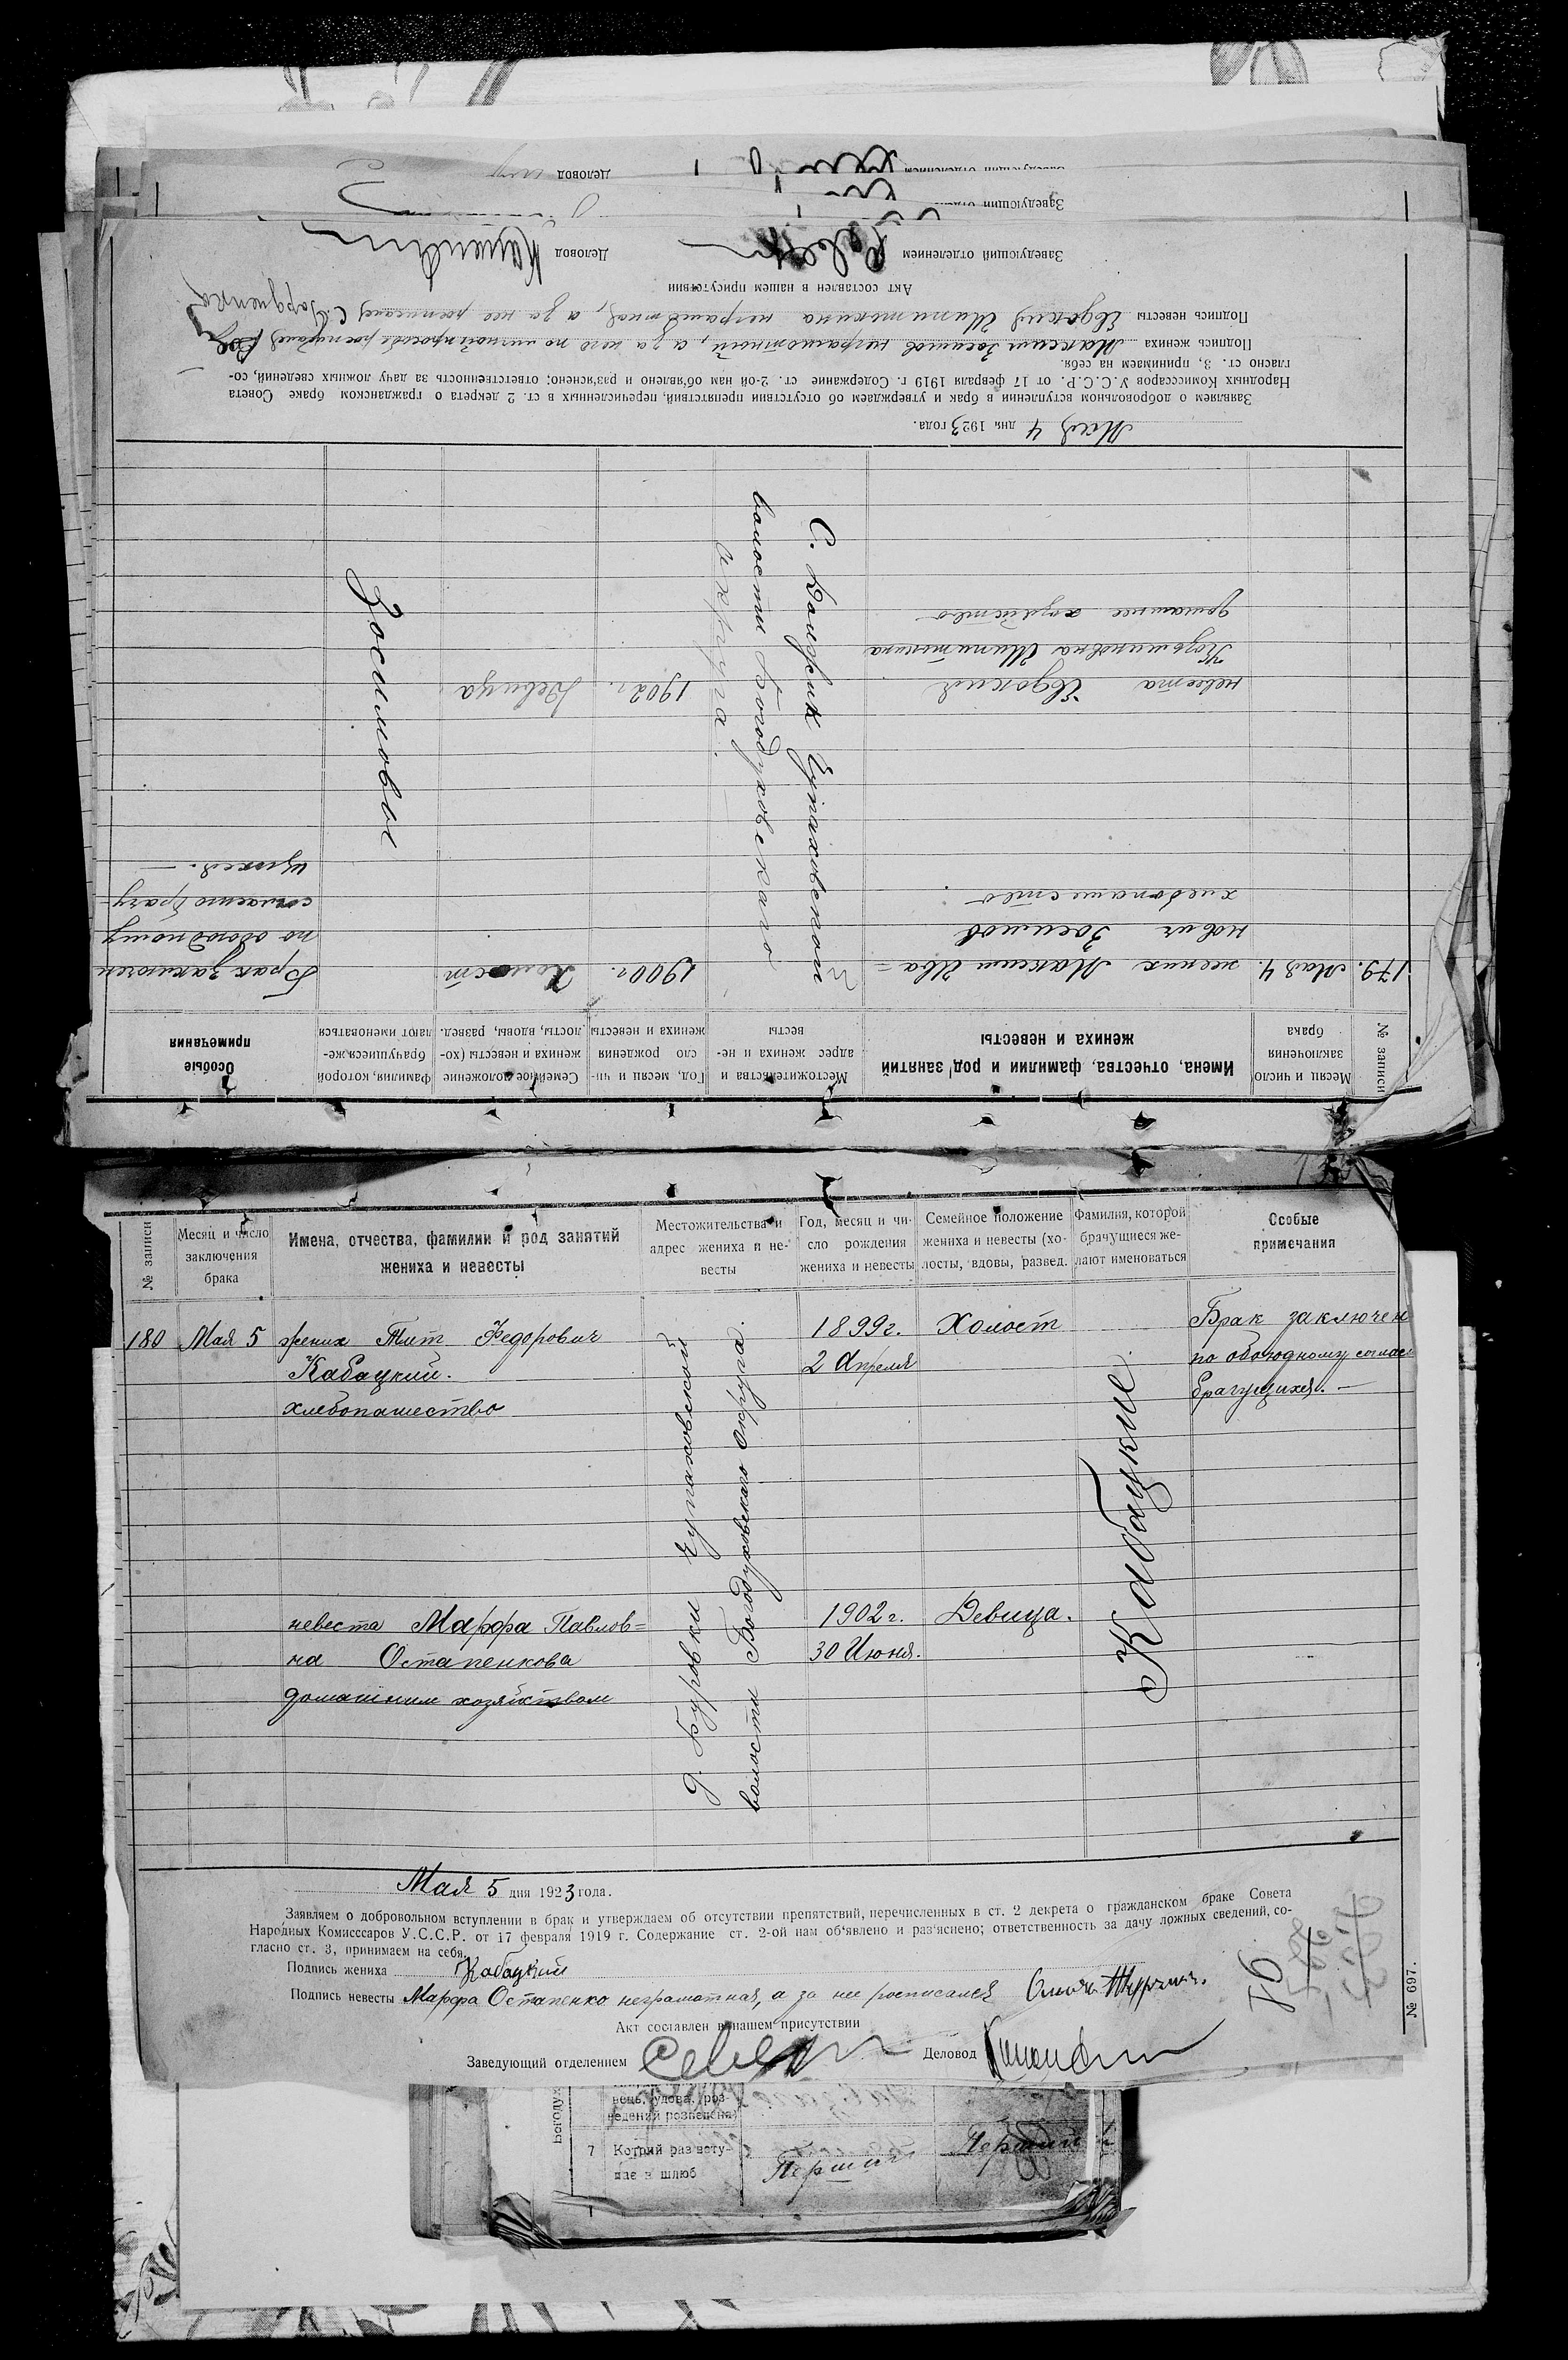 Деловод
Заведующий отделением
Заведующий отделением
№ записи
Месяц и число заключения брака
Имена, отчества, фамилии и род занятий жениха и невесты
Местожительства и адрес жениха и невесты
Год, месяц и число рождения жениха и невесты
Семейное положение жениха и невесты (холосты, вдовы, развед.
Фамилия, которой брачущиеся желают именоваться
Особые примечания
179. Мая 4. жених Максим Ива= 1900г. Холост Брак заключен
нович Зосимов по обоюдному
хлебопашество согласию брачу
щихся. —
невеста Евдокия 1902г. Девица
Козьминовна Шипитькина
домашнее хозяйство
С. Чупаховской
волости Богодуховскаго
округа.
Зосимовы
Мая 4 дня 1923 года.
Заявляем о добровольном вступлении в брак и утверждаем об отсутствии препятствий, перечисленных в ст. 2 декрета о гражданском браке Совета
Народных Комиссаров У.С.С.Р. от 17 февраля 1919 г. Содержание ст. 2-ой нам об'явлено и раз'яснено; ответственность за дачу ложных сведений, со-
гласно ст. 3, принимаем на себя.
Подпись жениха Максим Зосимов неграмотный, а за него по личной просьбе росписался
Подпись невесты Евдокия Шипитькина неграмотная, а за нее росписался
Акт составлен в нашем присутствии
Заведующий отделением Деловод
№ записи
Месяц и число
заключения
брака
Имена, отчества, фамилии и род занятий
жениха и невесты
Местожительства и
адрес жениха и не-
весты
Год, месяц и чи-
сло рождения
жениха и невесты
Семейное положение
жениха и невесты (хо-
лосты, вдовы, развед.
Фамилия, которой
брачущиеся же-
лают именоваться
Особые
примечания
180 Мая 5 жених Тит Федорович 1899г. Холост Брак заключен
Кабацкий. 2 Апреля по обоюдному соглас
хлебопашество брачущихся. —
д. Буровки Чупаховской
волости Богодуховскаго округа.
Кабацкие
невеста Марфа Павлов= 1902г. Девица.
на Остапенкова 30 Июня.
домашним хозяйством
Мая 5 дня 1923 года.
Заявляем о добровольном вступлении в брак и утверждаем об отсутствии препятствий, перечисленных в ст. 2 декрета о гражданском браке Совета
Народных Комисссаров У.С.С.Р. от 17 февраля 1919 г. Содержание ст. 2-ой нам об'явлено и раз'яснено; ответственность за дачу ложных сведений, со-
гласно ст. 3, принимаем на себя.
Подпись жениха Кабацкий
Подпись невесты Марфа Остапенко неграмотная, а за нее росписался
Акт составлен в нашем присутствии
Заведующий отделением Деловод
№ 697.
7 Котрий раз всту-
пає в шлюб
Перший Перший